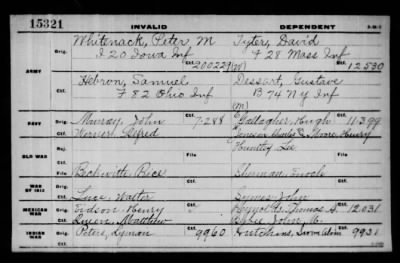 15321 INVALID DEPENDENT 3-063
Orig. Whitenack, Peter M Tyter, David
I 20 Iowa Inf F 28 Mass Inf
Ctf. 200229 (W) Ctf. 12530
ARMY
Hebron, Samuel Dessart, Gustave
F 82 Ohio Inf B 74 N.Y Inf
(M)
NAVY Orig. Murray, John 7288 Gallagher, Hugh 11399
Werner, Alfred Moore, Henry
Huntty Lee
OLD WAR
Beckwith, Rice Sherman, Enoch
WAR OF 1812
Luce, Walter Symes, John
MEXICAN WAR Judson, Henry Reynolds, Thomas A. 12031
Queen, Matthew John M.
INDIAN WAR Peters, Lyman 9960 Hutchins, 9931